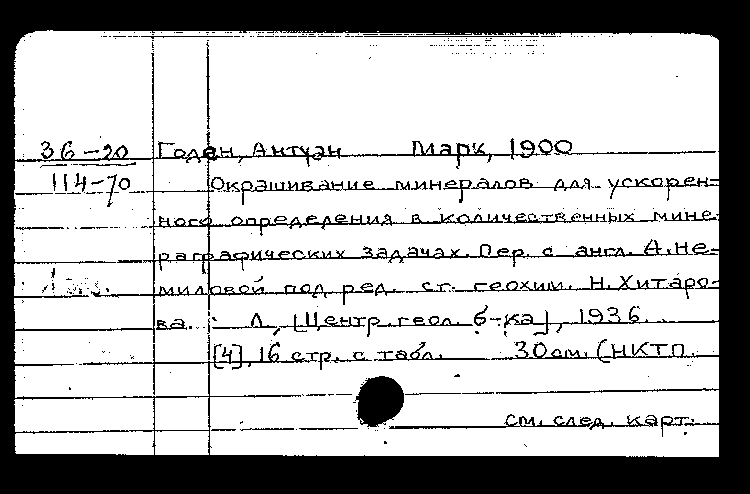 36-20 Годэн, Антуан Марк, 1900
114-70 Окрашивание минералов для ускорен=
ного определения в количественных мине
раграфических задачах. Пер. с англ. А. Не-
миловой под ред. ст. геохим. Н. Хитаро-
ва. : Л, [Центр. геол. б-ка], 1936.
[4], 16 стр. с табл. 30 см. (НКТП.
см. след. карт.